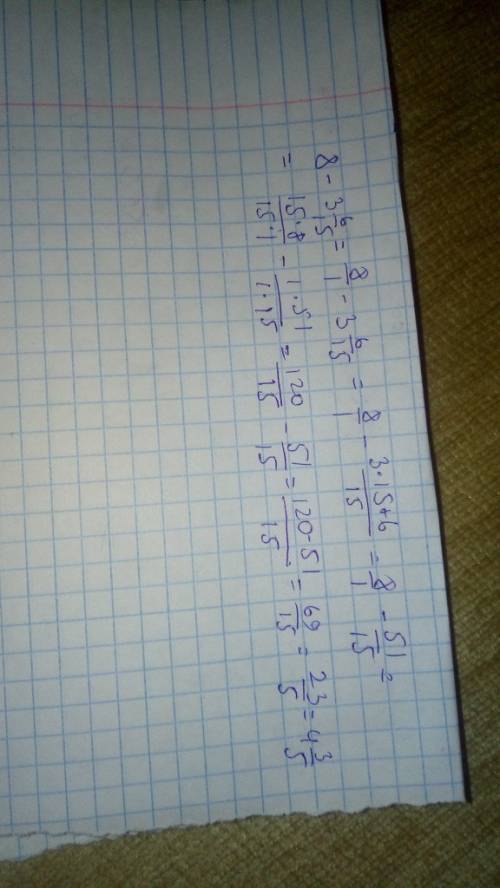 8 - 3 6/15 = 8/1 - 3 6/15 = 8/1 - 3·15+6/15 = 8/1 - 51/15 =
= 15·8/15·1 - 1·51/1·15 = 120/15 - 51/15 = 120-51/15 = 69/15 = 23/5 = 4 3/5